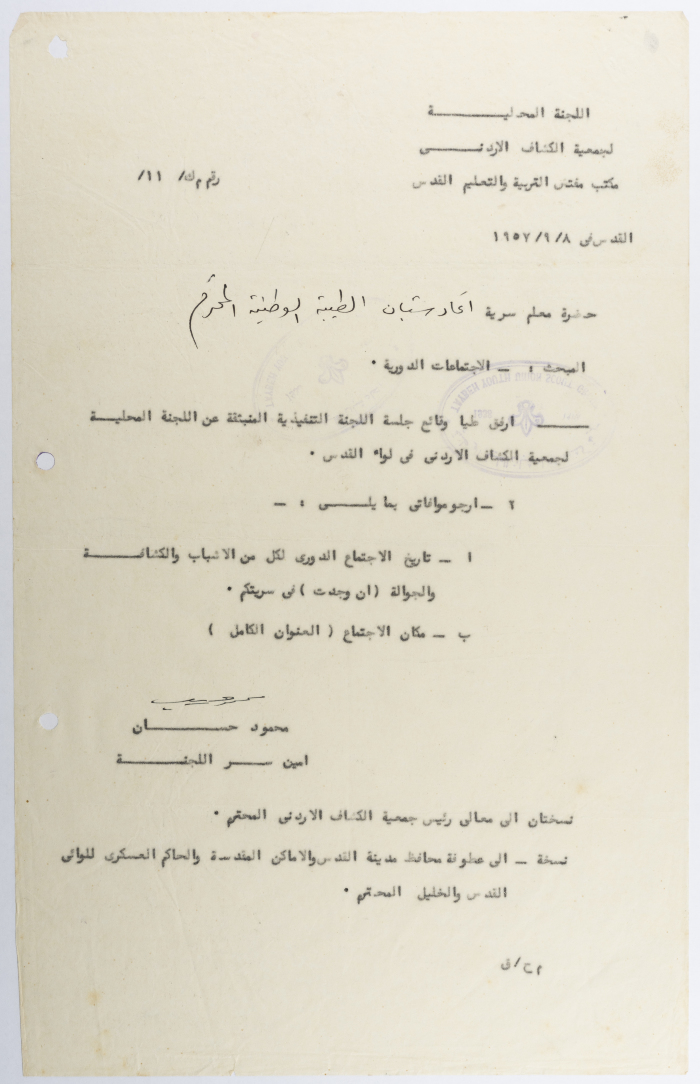 اللجنة المحليـــــــة
لجمعية الكشاف الاردنـــــى
مكتب مفتش التربية والتعليم القدس
رقم م ك/ ١١/
القدس فى ١٩٥٧/٩/٨
حضرة معلم سرية اتحاد شبان الطيبة الوطنية المحترم
المبحث : ــ الاجتماعات الدورية ٠
ـــــــ ارفق طيا وقائع جلسة اللجنة التنفيذية المنبثقة عن اللجنة المحليــــة
لجمعية الكشاف الاردنى فى لواء القدس ٠
٢ ــ ارجو موافاتى بما يلـــــى : ــ
ا ــ تاريخ الاجتماع الدورى لكل من الاشبال والكشافــــــة
والجوالة (ان وجدت ) فى سريتكم ٠
ب ــ مكان الاجتماع ( العنوان الكامل )
محمود حســـــــان
امين ســـر اللجنـــــــة
نسختان الى معالى رئيس جمعية الكشاف الاردنى المحترم ٠
نسخة ــ الى عطوفة محافظ مدينة القدس والاماكن المقدسة والحاكم العسكرى للوائى
القدس والخليل المحترم ٠
م ح/ ق